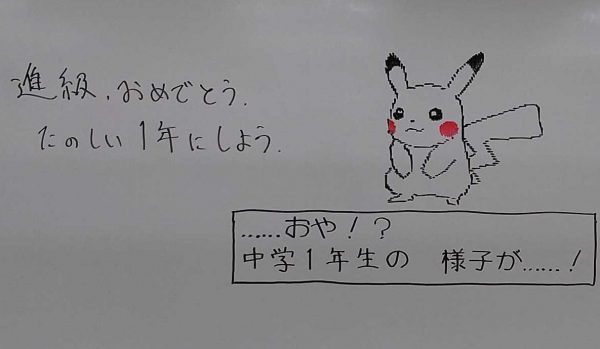 進級、おめでとう.
たのしい1年にしよう.
……おや!?
中学1年生の 様子が……!